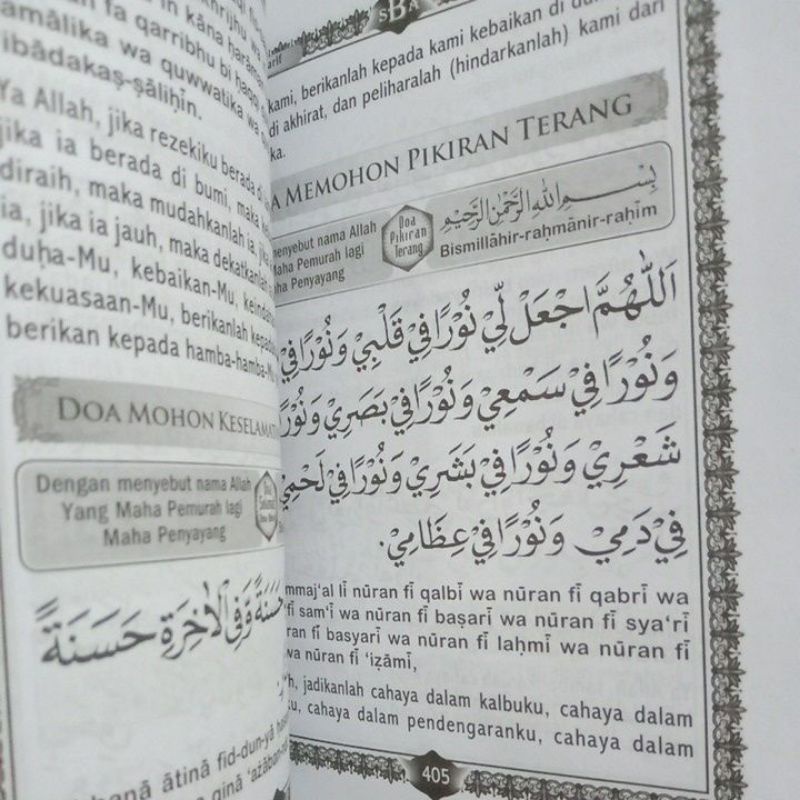 amālika wa quwwatika wa
ibādakaṣ-ṣāliḥīn.
Ya Allah, jika rezekiku berada di
jika ia berada di bumi, maka
diraih, maka mudahkanlah ia, jika
ia, jika ia jauh, maka dekatkanlah
duḥa-Mu, kebaikan-Mu, keindahan
kekuasaan-Mu, berikanlah kepada
berikan kepada hamba-hamba-Mu
DOA MOHON KESELAMAT
Dengan menyebut nama Allah
Yang Maha Pemurah lagi
Maha Penyayang
حَسَنَةً وَّفِي الْاٰخِرَةِ حَسَنَةً
ātinā fid-dun-yā
SBA
kami, berikanlah kepada kami kebaikan di
di akhirat, dan peliharalah (hindarkanlah) kami dari
ka.
MEMOHON PIKIRAN TERANG
menyebut nama Allah
Maha Pemurah lagi
Maha Penyayang
Doa
Pikiran
Terang
بِسْمِ اللهِ الرَّحْمٰنِ الرَّحِيْمِ
Bismillāhir-raḥmānir-raḥīm
اَللّٰهُمَّ اجْعَلْ لِّيْ نُوْرًا فِيْ قَلْبِيْ وَنُوْرًا فِيْ
وَنُوْرًا فِيْ سَمْعِيْ وَنُوْرًا فِيْ بَصَرِيْ وَنُوْرًا
شَعْرِيْ وَنُوْرًا فِيْ بَشَرِيْ وَنُوْرًا فِيْ لَحْمِيْ
فِيْ دَمِيْ وَنُوْرًا فِيْ عِظَامِيْ.
mmaj‘al lī nūran fī qalbī wa nūran fī qabrī wa
fī sam‘ī wa nūran fī baṣarī wa nūran fī sya‘rī
ran fī basyarī wa nūran fī laḥmī wa nūran fī
wa nūran fī ‘iẓāmī,
h, jadikanlah cahaya dalam kalbuku, cahaya dalam
ku, cahaya dalam pendengaranku, cahaya dalam
405